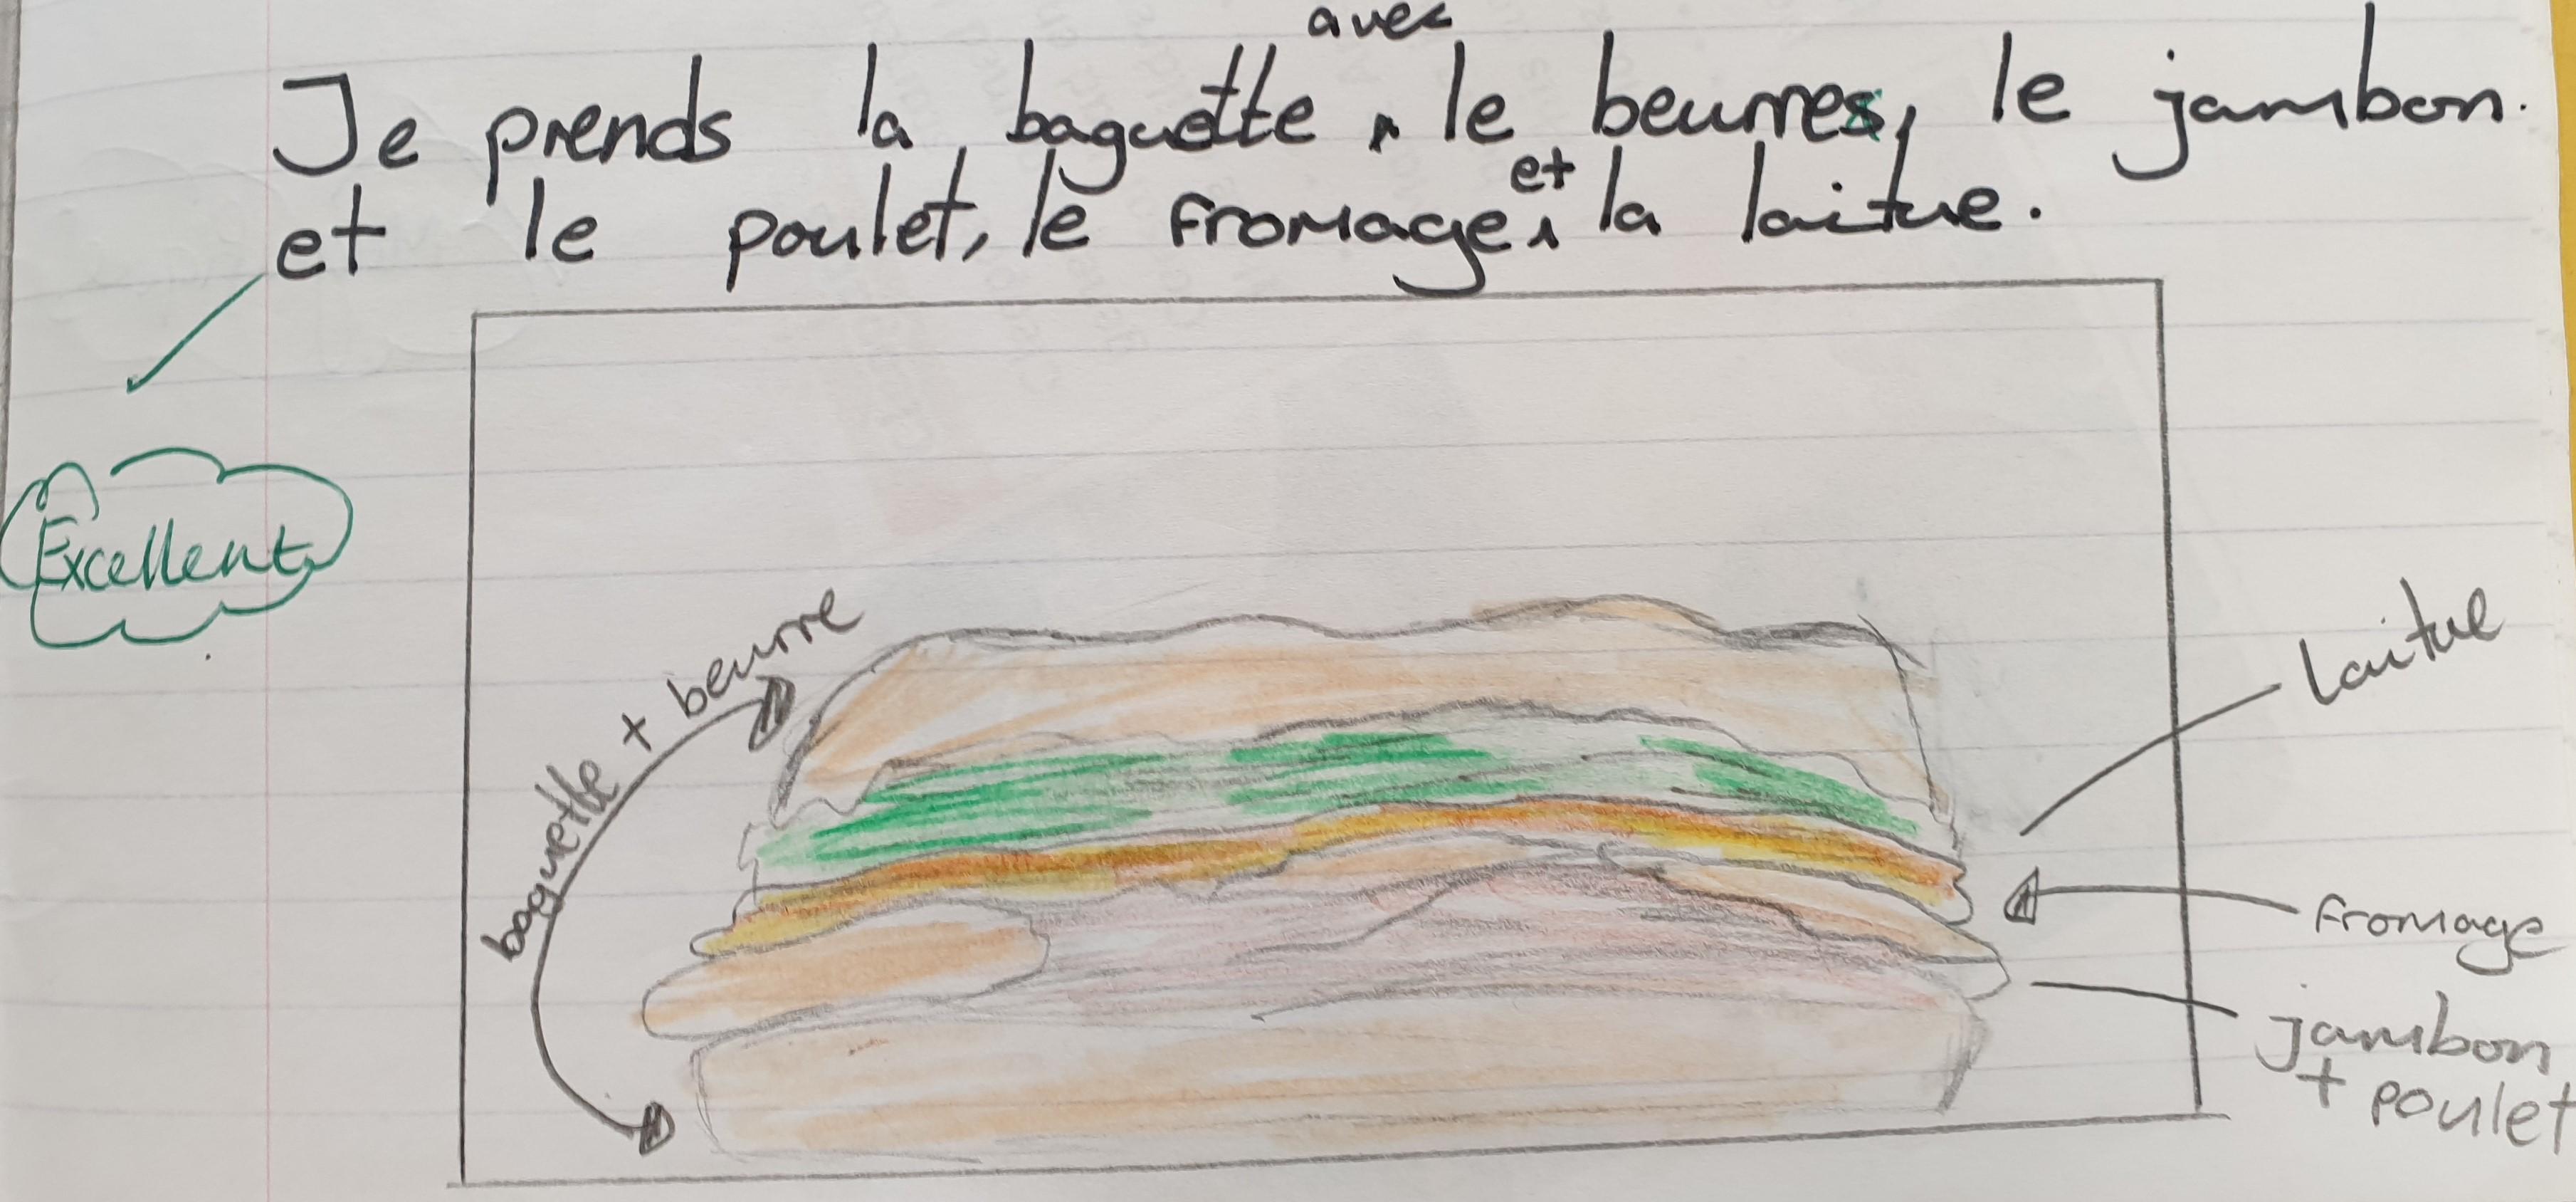 Je prends la baguette avec le beurres, le jambon.
et le poulet, le fromage et la laitue.
Excellent
baguette + beurre
Laitue
fromage
jambon
+ poulet